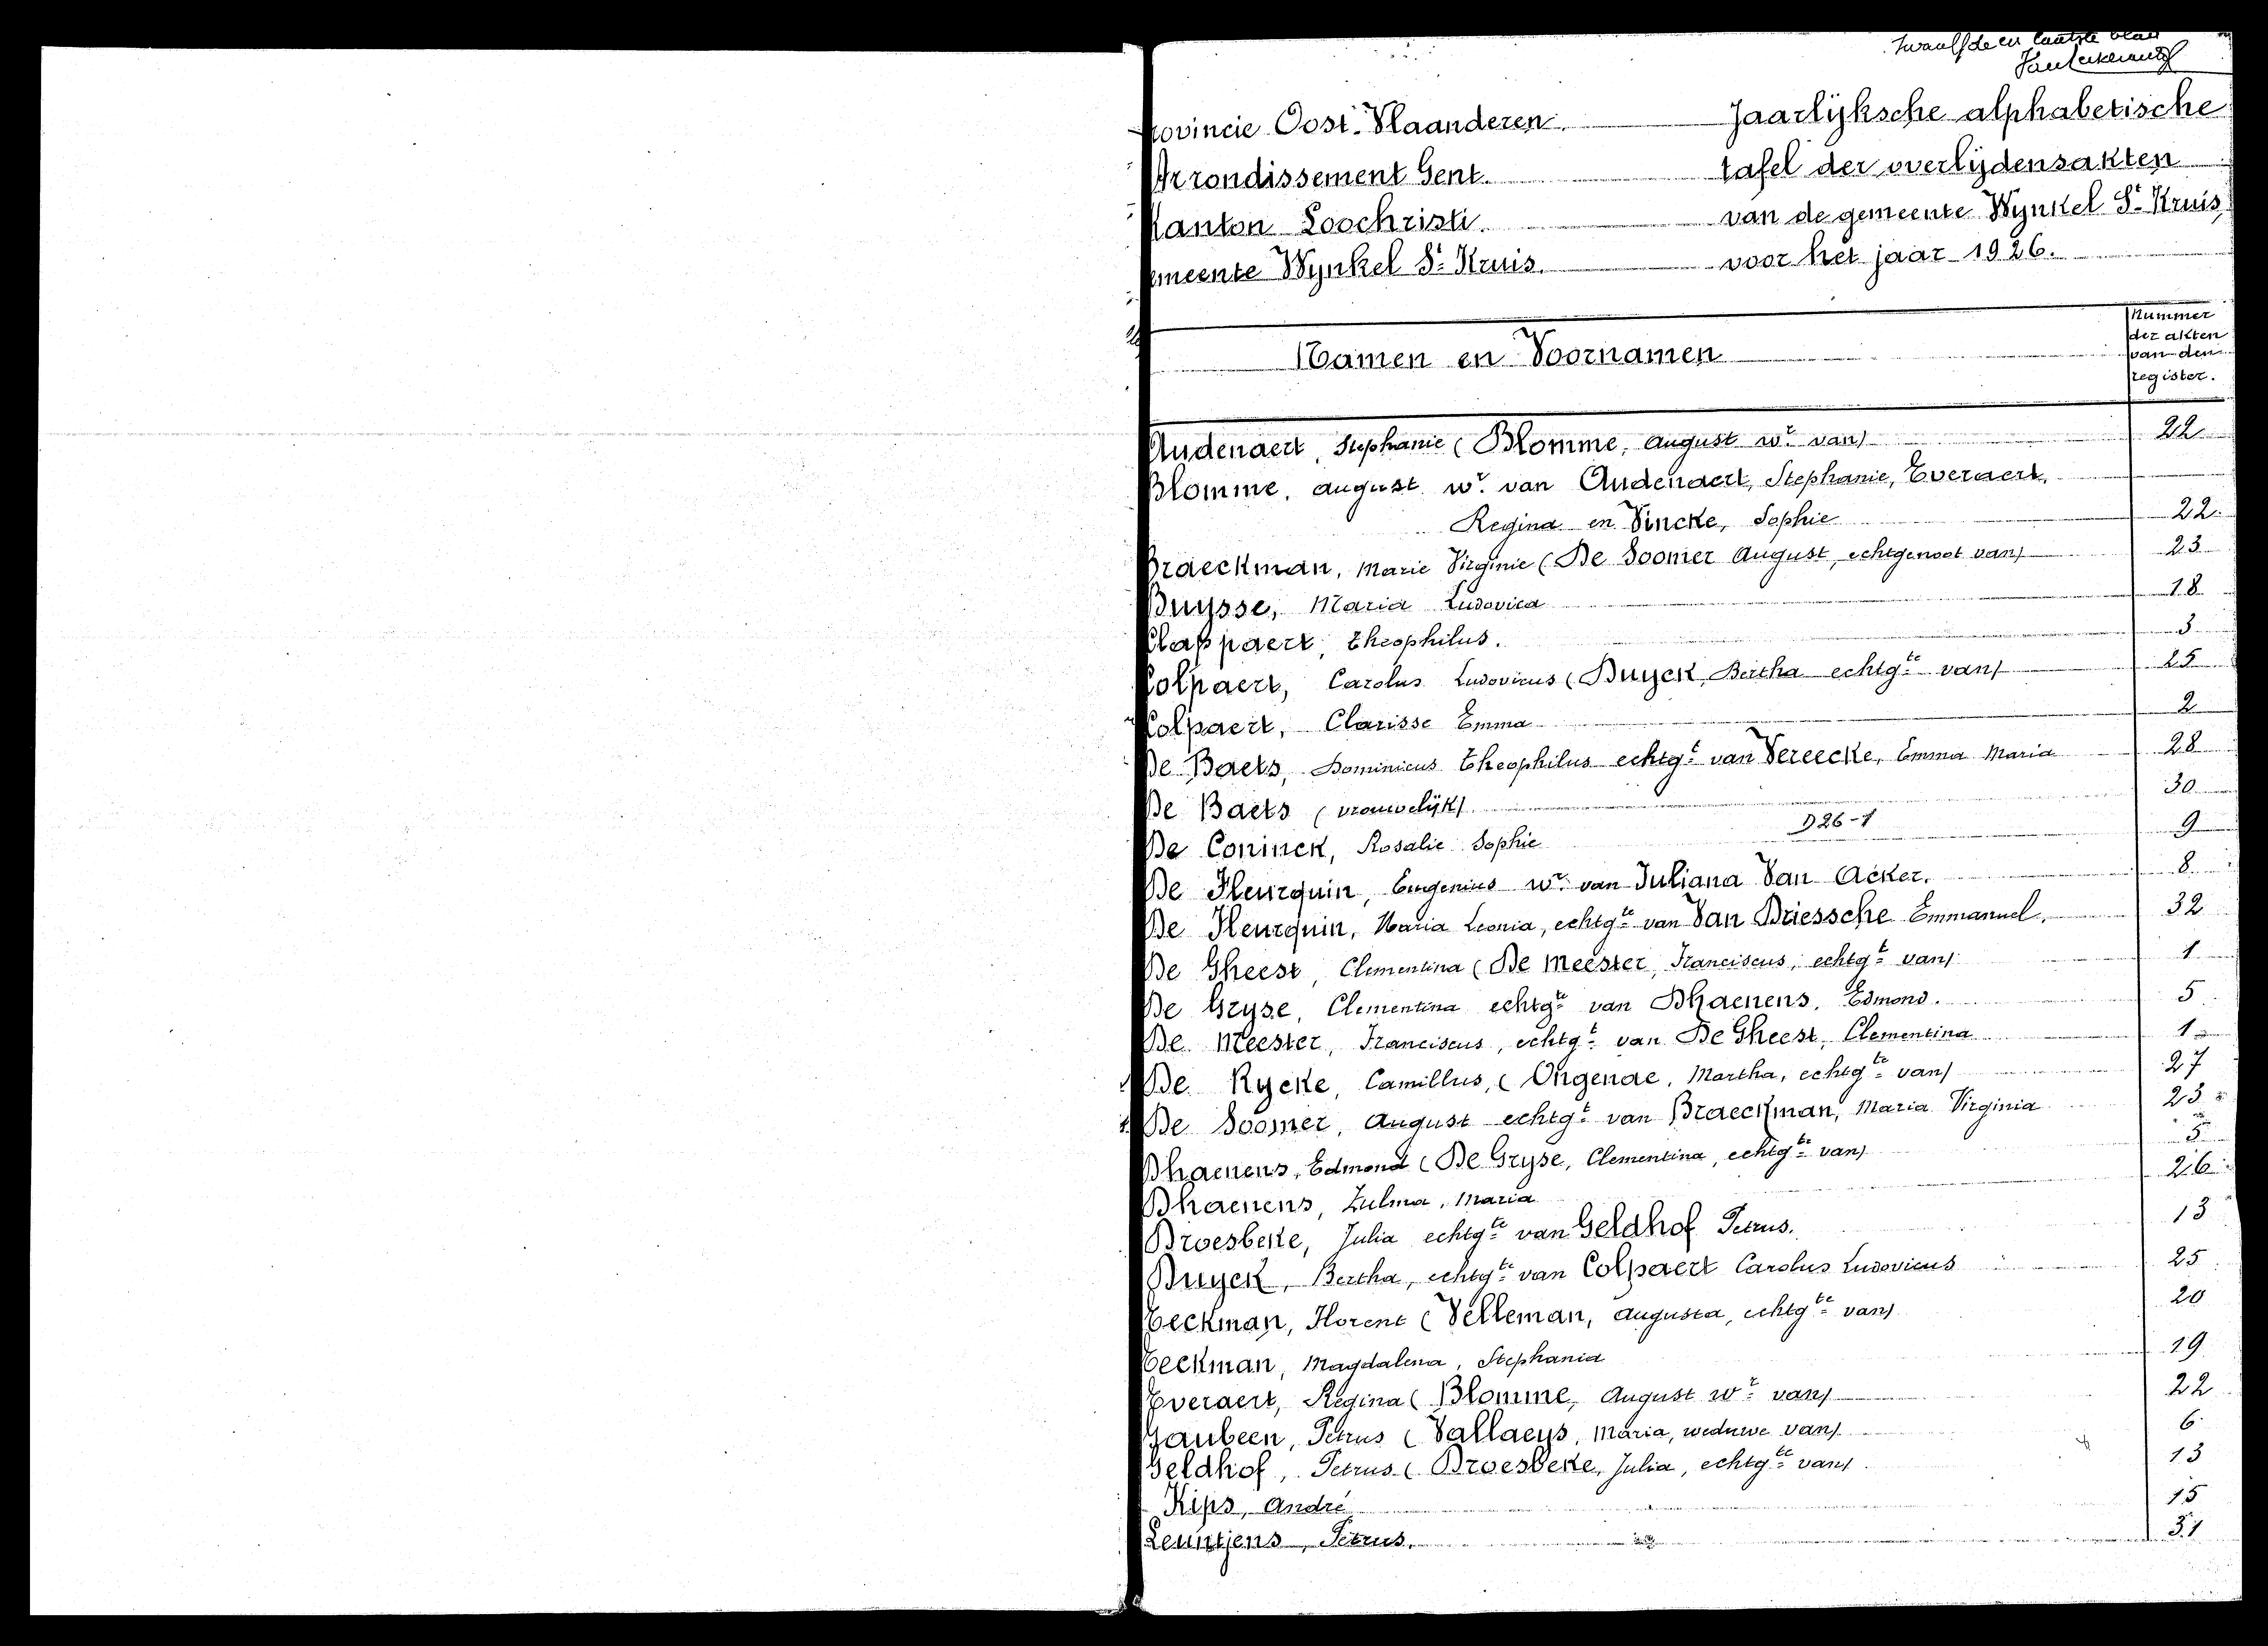 Twaalfde en laatste blad
Provincie Oost-Vlaanderen. Jaarlijksche alphabetische
Arrondissement Gent. tafel der overlijdensakten
Kanton Loochristi. van de gemeente Wynkel St. Kruis
Gemeente Wynkel St. Kruis. voor het jaar 1926.
Namen en Voornamen
Nummer
der akten
van den
register.
Audenaert, Stephanie (Blomme, August wr. van) 22
Blomme, august wr. van Audenaert, Stephanie, Everaert,
Regina en Vincke, Sophie 22
Braeckman, Marie Virginie (De Soomer August, echtgenoot van) 23
Buysse, Maria Ludovica 18
Clappaert, Theophilus. 3
Colpaert, Carolus Ludovicus (Duyck, Bertha echtgte van) 25
Colpaert, Clarisse Emma 2
De Baets, Dominicus Theophilus echtgt van Vereecke, Emma Maria 28
De Baets (vrouwelijk) 30
D26-1
De Coninck, Rosalie Sophie 9
De Fleurquin, Eugenius wr. van Juliana Van Acker. 8
De Fleurquin, Maria Leonia, echtgte van Van Driessche Emmanuel. 32
De Gheest, Clementina (De Meester, Franciscus, echtgt van) 1
De Gryse, Clementina echtgte van Dhaenens, Edmond. 5
De Meester, Franciscus, echtgt van De Gheest, Clementina 1
De Rycke, Camillus, (Ongenae, Martha, echtgte van) 27
De Soomer, August echtgt van Braeckman, Maria Virginia 23
Dhaenens, Edmond (De Gryse, Clementina, echtgte van) 5
Dhaenens, Zulma, Maria 26
Droesbeke, Julia echtgte van Geldhof Petrus. 13
Duyck, Bertha, echtgte van Colpaert Carolus Ludovicus 25
Eeckman, Florent (Velleman, Augusta, echtgte van) 20
Eeckman, Magdalena, Stephania 19
Everaert, Regina (Blomme, August wr van) 22
Gaubeen, Petrus (Vallaeys, Maria, weduwe van) 6
Geldhof, Petrus (Droesbeke, Julia, echtgte van) 13
Kips, André 15
Leuntjens, Petrus. 31